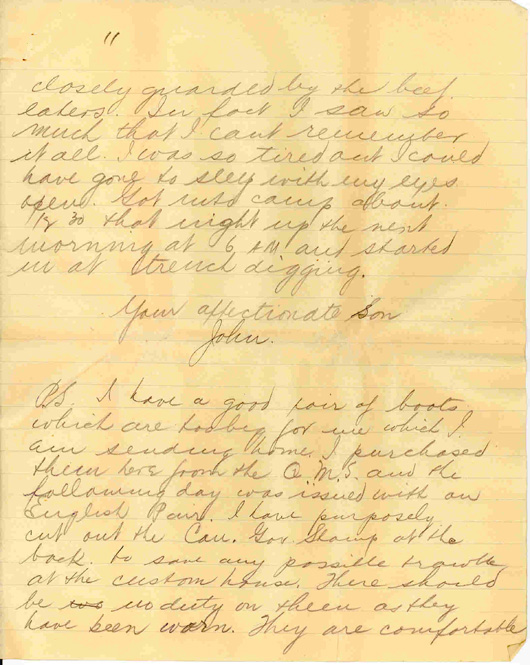 11
closely guarded by the beef
eaters. In fact I saw so
much that I cant remember
it all. I was so tired out I could
have gone to sleep with my eyes
open. Got into camp about
12 30 that night up the next
morning at 6 AM and started
in at trench digging.
Your affectionate Son
John.
P.S. I have a good pair of boots
which are too big for me which I
am sending home. I purchased
them here from the Q.M.S. and the
following day was issued with an
English Pair. I have purposely
cut out the Can. Gov Stamp at the
back. to save any possible trouble
at the custom house. There should
be no duty on them as they
have been worn. They are comfortable